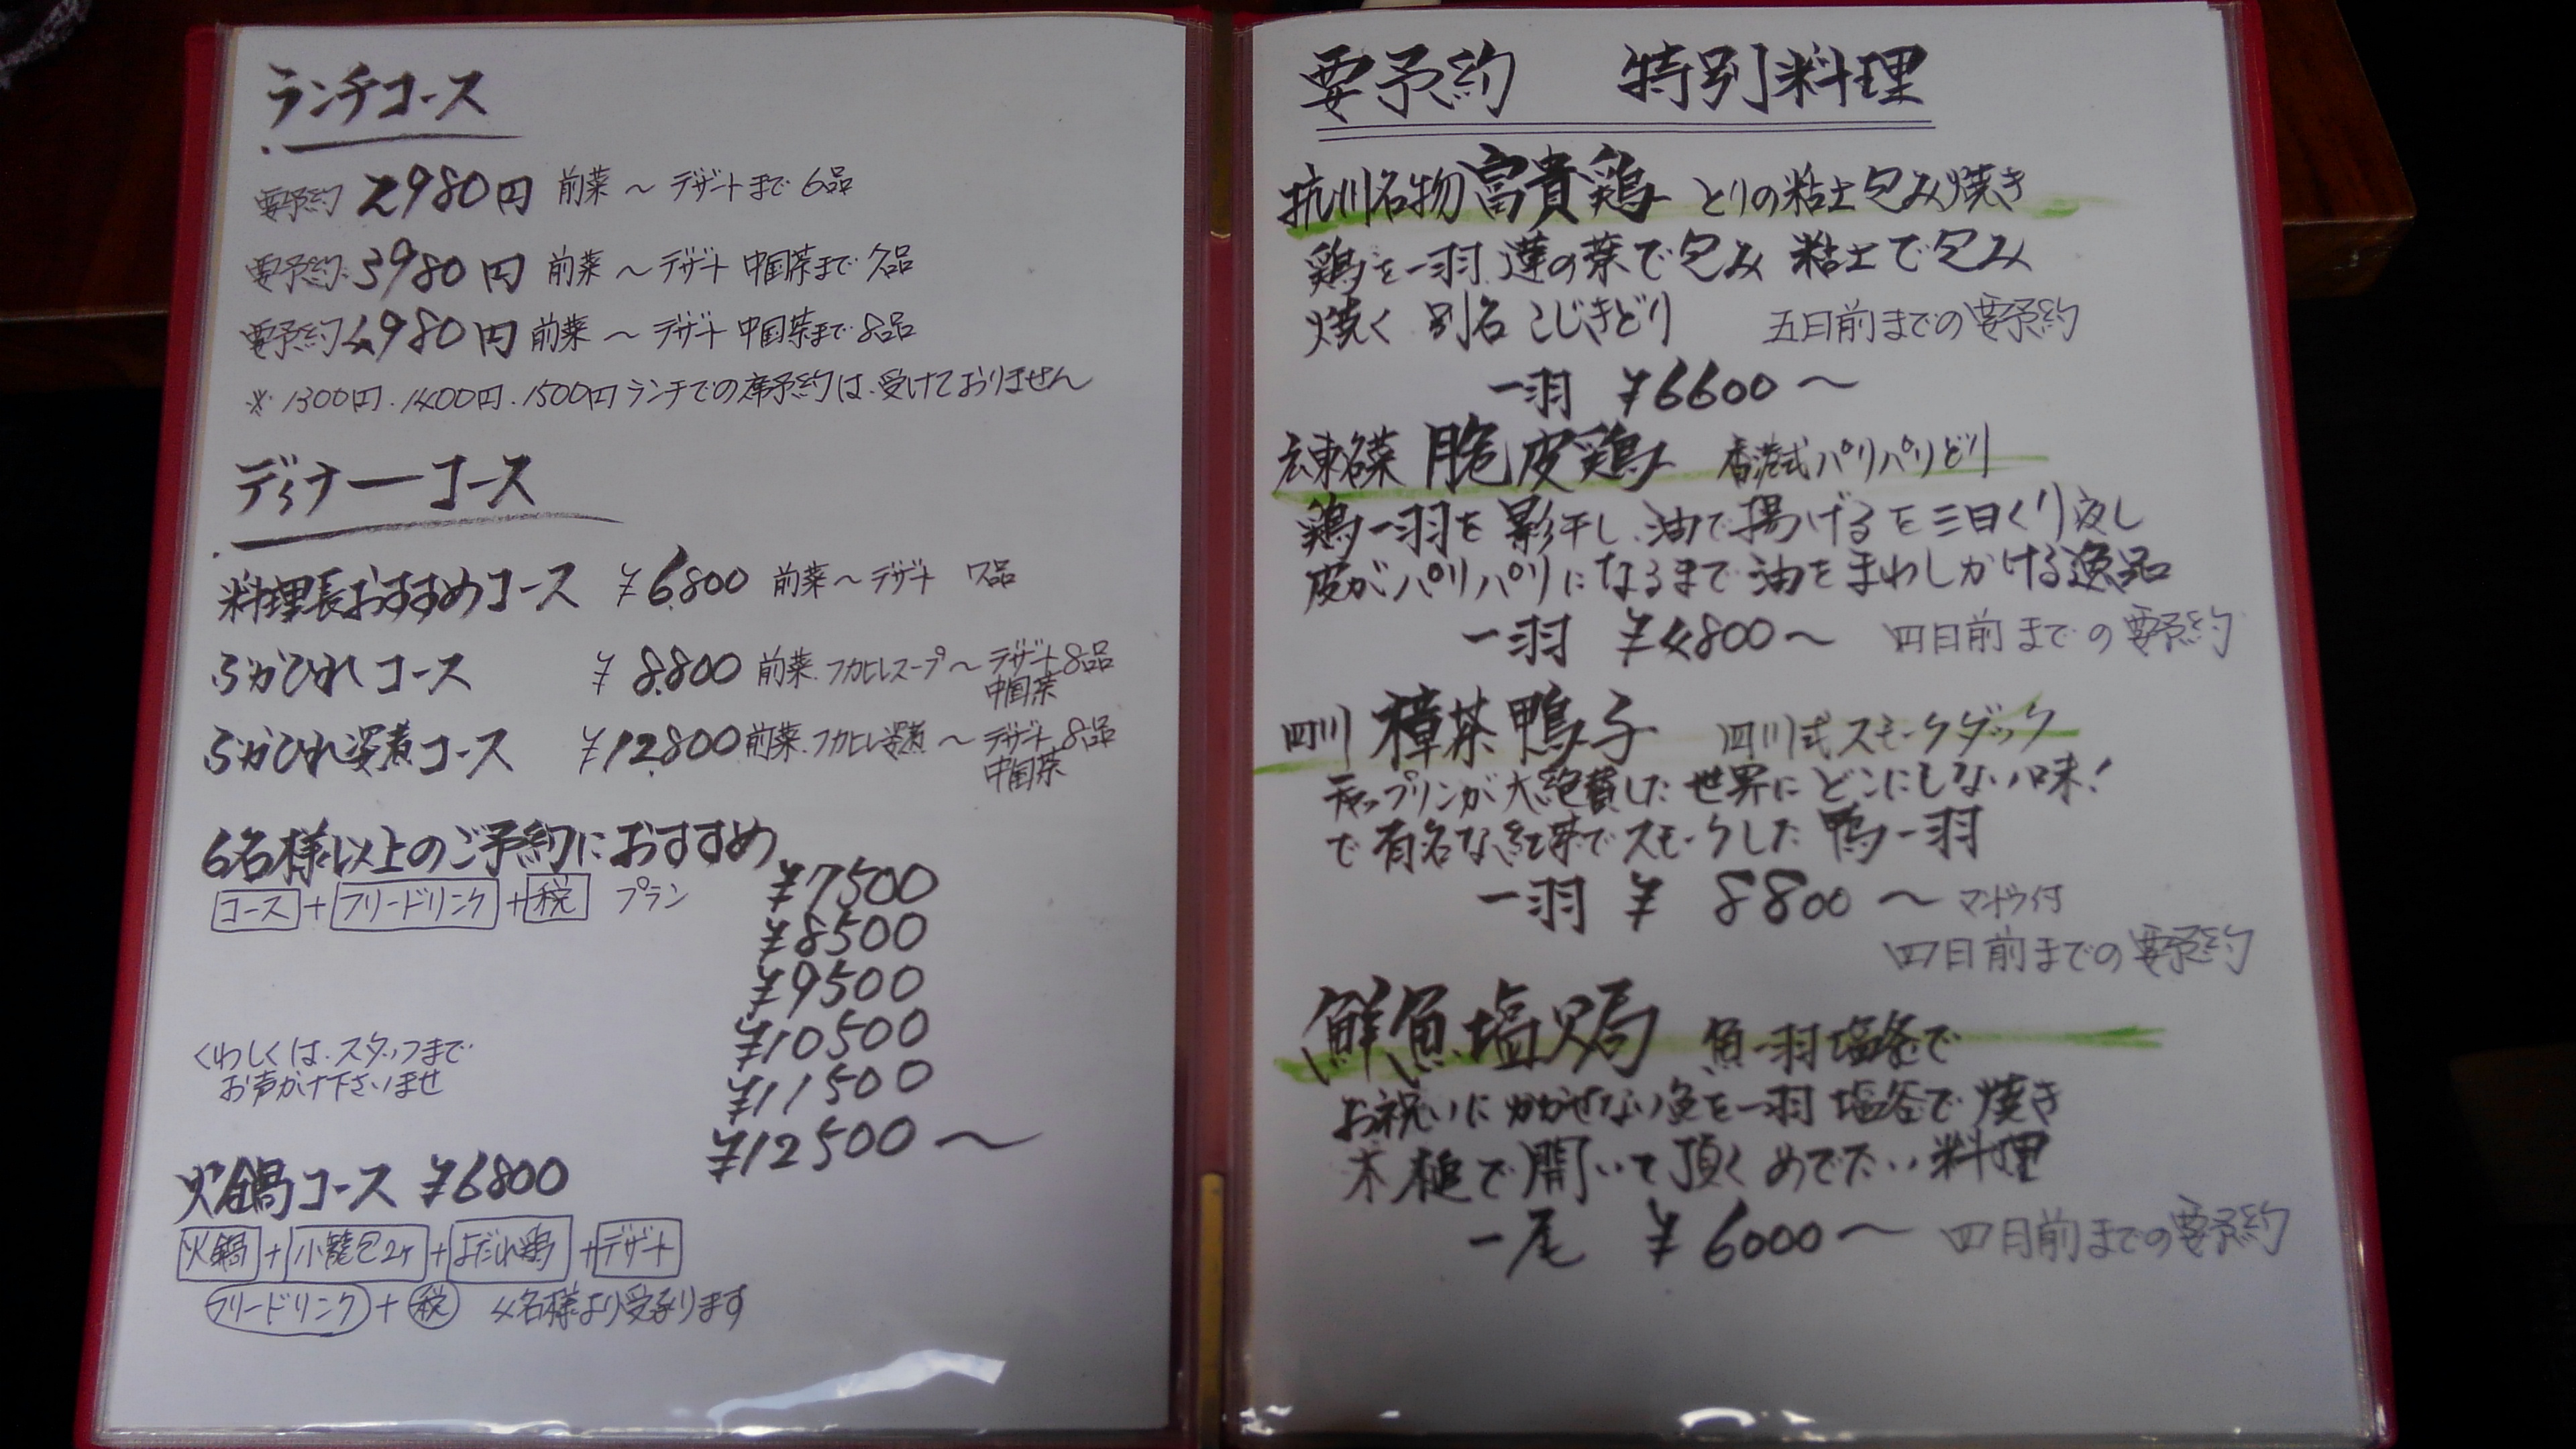 ランチコース
要予約 2980円 前菜 〜 デザートまで 6品
要予約 3980円 前菜 〜 デザート 中国茶まで 7品
要予約 4980円 前菜 〜 デザート 中国茶まで 8品
※ 1300円. 1400円. 1500円ランチでの席予約は受けておりません
ディナーコース
料理長おすすめコース ¥6.800 前菜〜デザート 7品
ふかひれコース ¥8.800 前菜.フカヒレスープ〜デザート 中国茶 8品
ふかひれ姿煮コース ¥12.800 前菜.フカヒレ姿煮 〜デザート 中国茶 8品
6名様以上のご予約におすすめ
コース + フリードリンク + 税 プラン
¥7500
¥8500
¥9500
¥10500
¥11500
¥12500〜
くわしくは.スタッフまで
お声がけ下さいませ
火鍋コース ¥6800
火鍋 + 小籠包2ケ + よだれ鶏 + デザート
フリードリンク + 税 4名様より受承ります
要予約 特別料理
杭州名物 富貴鶏 とりの粘土包み焼き
鶏を一羽 蓮の葉で包み 粘土で包み
焼く 別名 こじきどり 五日前までの要予約
一羽 ¥6600〜
広東名菜 脆皮鶏 香港式パリパリどり
鶏一羽を影干し.油で揚げるを三日くり返し
皮がパリパリになるまで油をまわしかける逸品
一羽 ¥4800〜 四日前までの要予約
四川 樟茶鴨子 四川式スモークダック
チャップリンが大絶賛した世界にどこにしない味!
で有名な紅茶でスモークした鴨一羽
一羽 ¥8800〜 マントウ付
四日前までの要予約
鮮魚塩焗 魚一羽塩釜で
お祝いにかかせない魚を一羽塩釜で焼き
木槌で開いて頂くめでたい料理
一尾 ¥6000〜 四日前までの要予約